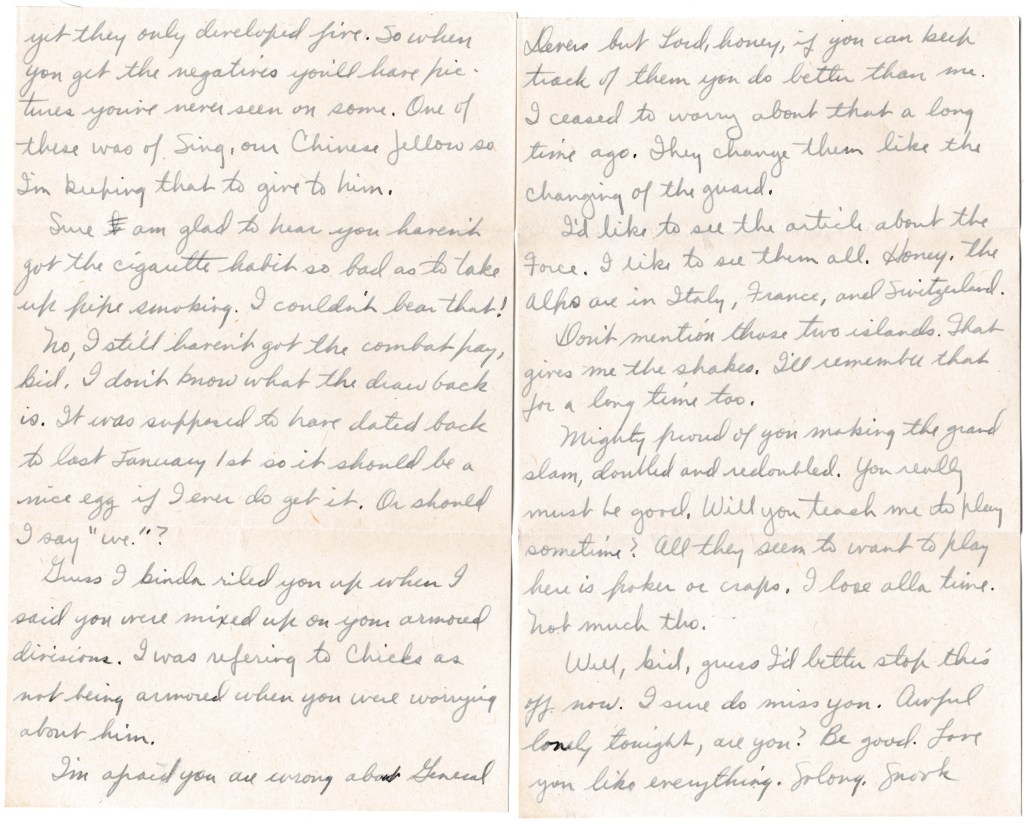 yet they only developed five. So when
you get the negatives you'll have pic-
tures you've never seen on some. One of
these was of Sing, our Chinese fellow so
I'm keeping that to give to him.
Sure I am glad to hear you haven't
got the cigarette habit so bad as to take
up pipe smoking. I couldn't bear that!
No, I still haven't got the combat pay,
kid. I don't know what the draw back
is. It was supposed to have dated back
to last January 1st so it should be a
nice egg if I ever do get it. Or should
I say "we."?
Guess I kinda riled you up when I
said you were mixed up on your armored
divisions. I was refering to Chicks as
not being armored when you were worrying
about him.
I'm afraid you are wrong about General
Devers but Lord, honey, if you can keep
track of them you do better than me.
I ceased to worry about that a long
time ago. They change them like the
changing of the guard.
I'd like to see the article about the
Force. I like to see them all. Honey, the
Alps are in Italy, France, and Switzerland.
Don't mention those two islands. That
gives me the shakes. I'll remember that
for a long time too.
Mighty proud of you making the grand
slam, doubled and redoubled. You really
must be good. Will you teach me to play
sometime? All they seem to want to play
here is poker or craps. I lose alla time.
Not much tho.
Well, kid, guess I'd better stop this
off now. I sure do miss you. Awful
lonely tonight, are you? Be good. Love
you like everything. Solong. Snook